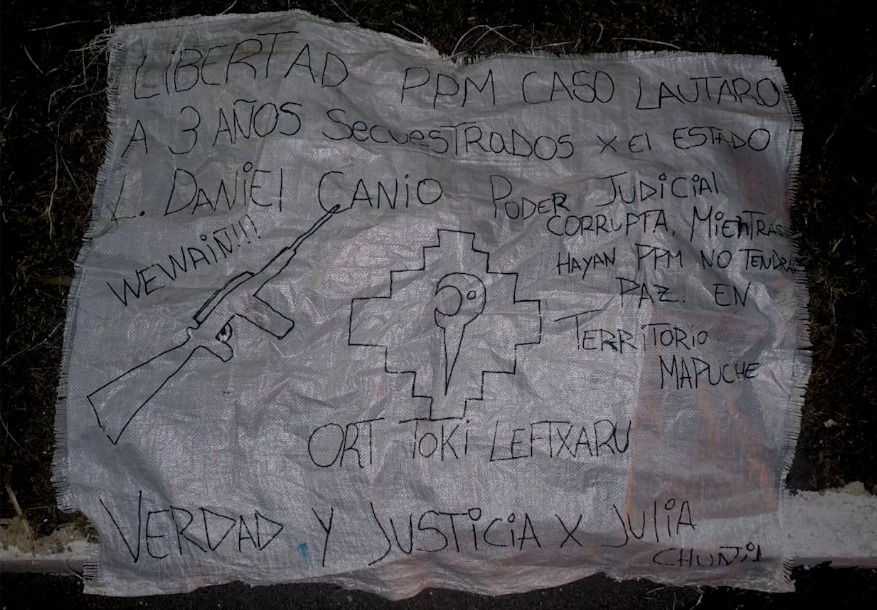 LiBERTAD PPM CASO LAUTARO
A 3 AÑOS SecuesTRADOS x El ESTADO
L. DANiEl CANiO
PODER JUDiCiAl
CORRUPTA, MiENTRAS
HAYAN PPM NO TENDRAN
PAZ. EN
TERRiTORiO
MAPUCHE
WEWAiÑ!!!
ORT TOKi LEFTXARU
VERDAD Y JUSTiCiA X JULiA
CHUÑiL